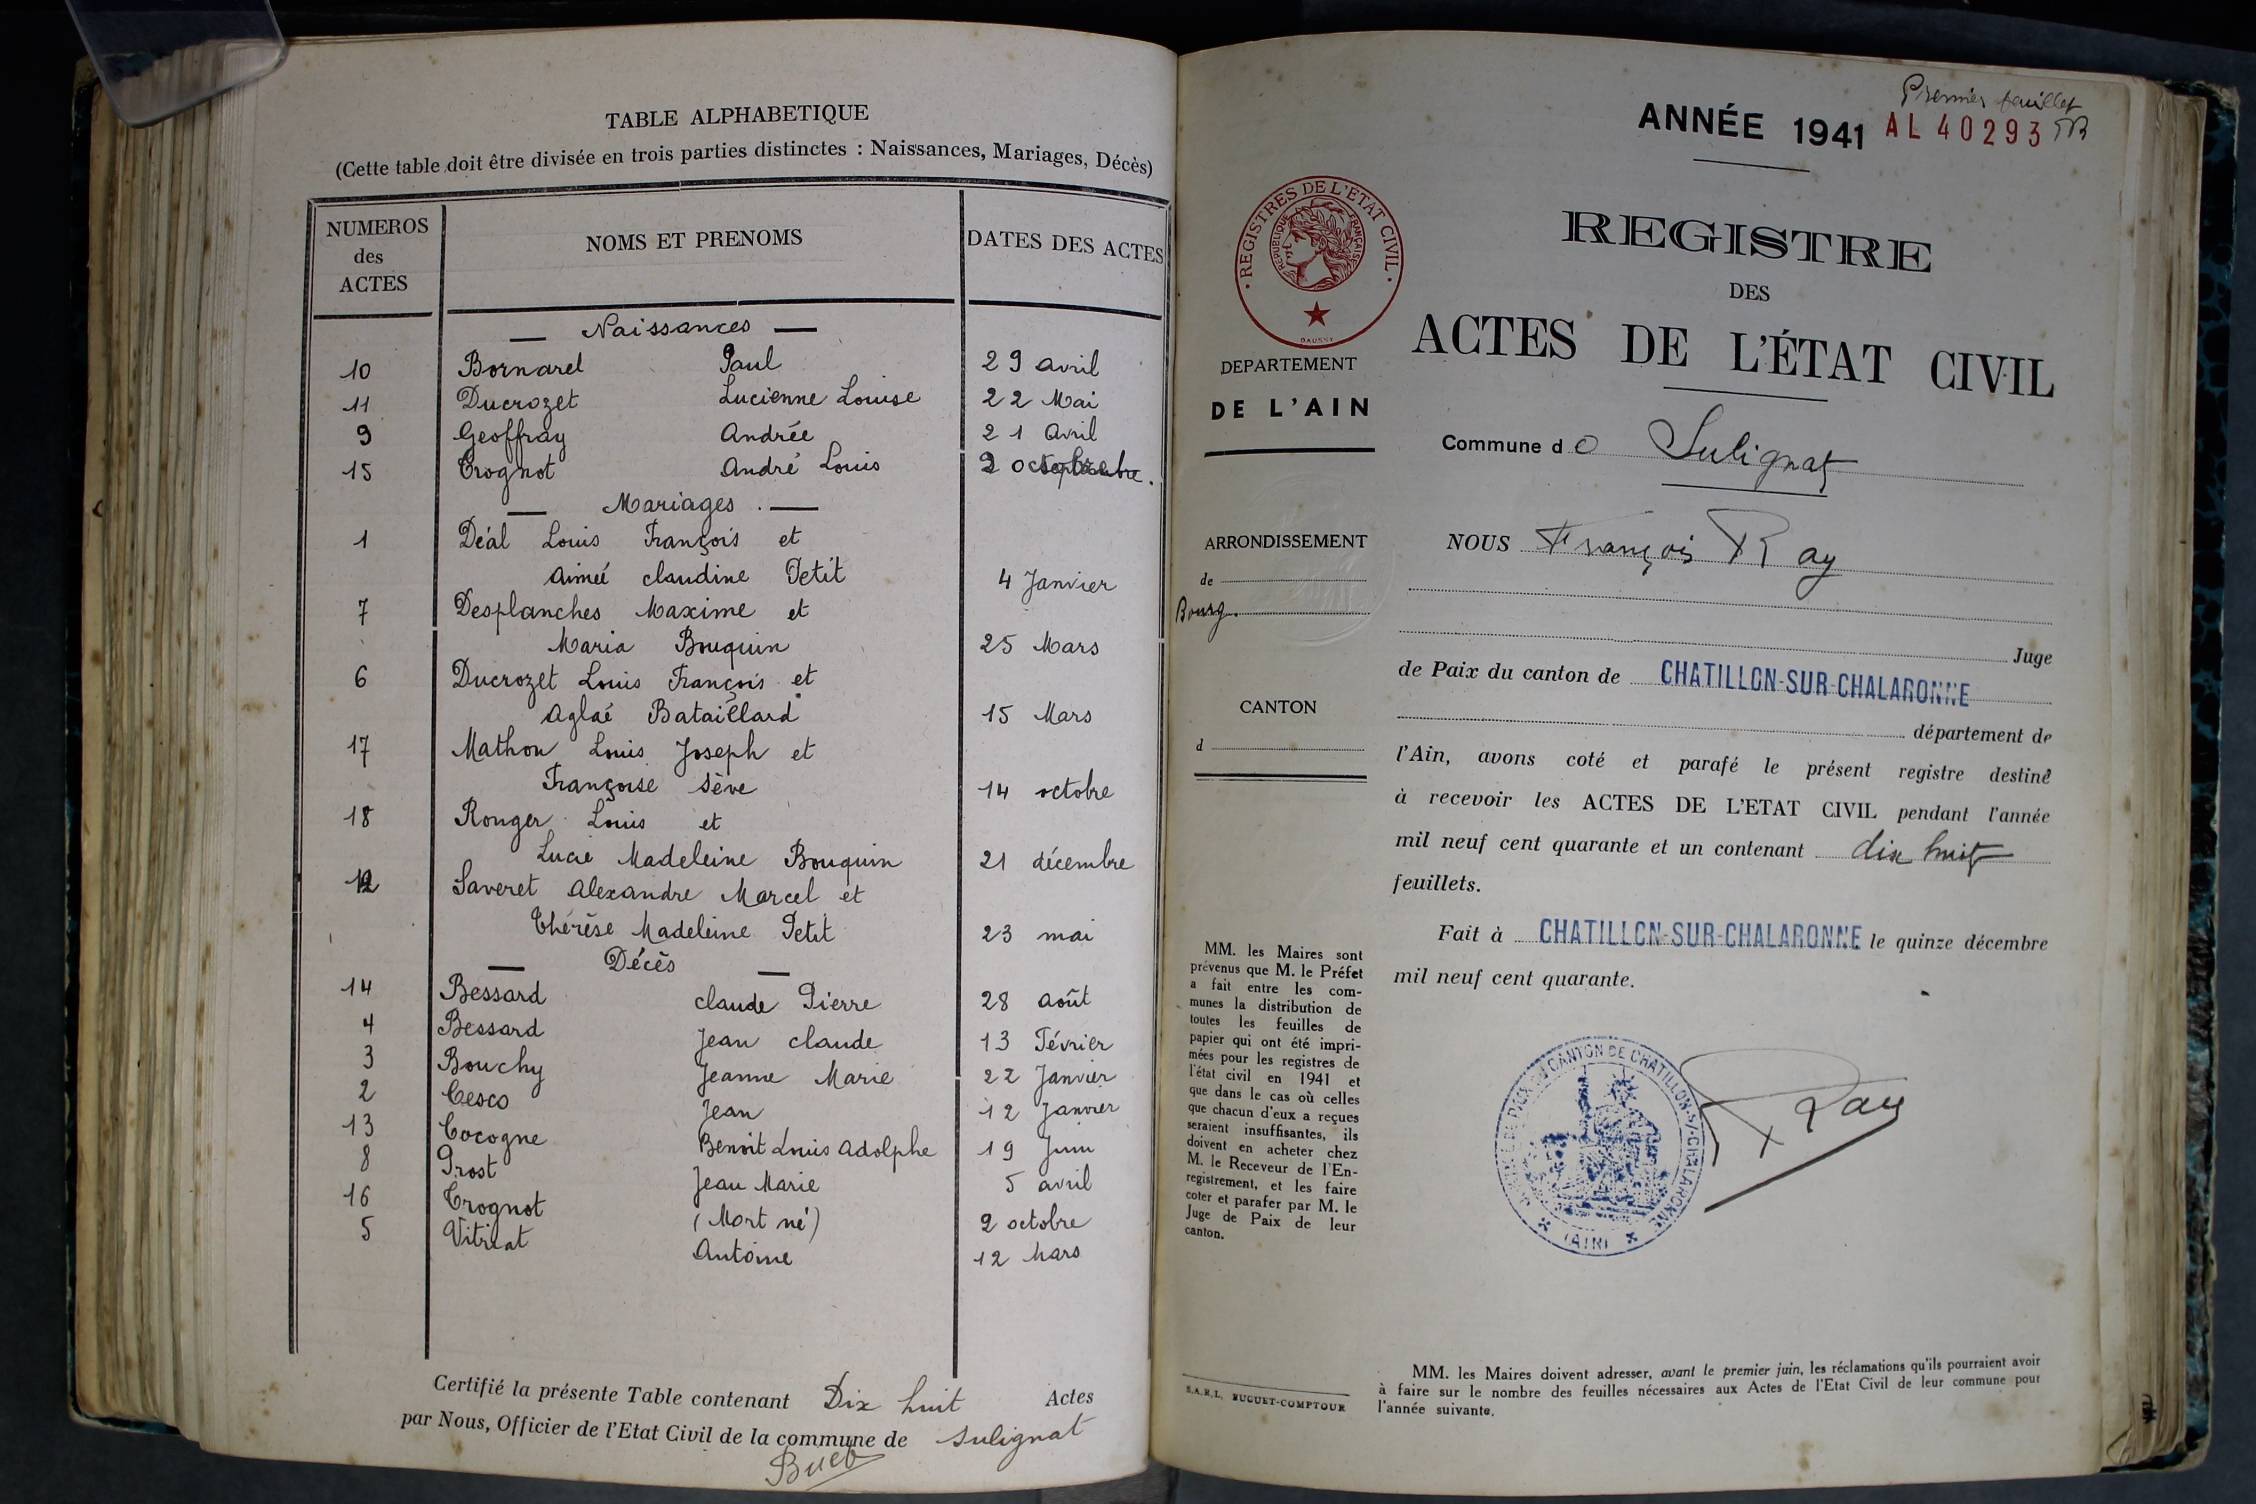 TABLE ALPHABETIQUE
(Cette table doit être divisée en trois parties distinctes : Naissances, Mariages, Décès)
NUMEROS des ACTES NOMS ET PRENOMS DATES DES ACTES
— Naissances —
10 Bornarel Paul 29 avril
11 Ducrozet Lucienne Louise 22 Mai
9 Geoffray Andrée 21 avril
15 Trognot André Louis 2 octobre.
— Mariages. —
1 Déal Louis François et
Aimeé Claudine Petit 4 Janvier
7 Desplanches Maxime et
Maria Bouquin 25 Mars
6 Ducrozet Louis François et
Aglaé Bataillard 15 Mars
17 Mathon Louis Joseph et
Françoise Sève 14 octobre
18 Ronger Louis et
Lucie Madeleine Bouquin 21 décembre
12 Saveret Alexandre Marcel et
Thérèse Madeleine Petit 23 mai
— Décès —
14 Bessard Claude Pierre 28 août
4 Bessard Jean Claude 13 Février
3 Bouchy Jeanne Marie 22 Janvier
2 Cesco Jean 12 Janvier
13 Cocogne Benoit Louis Adolphe 19 Juin
8 Prost Jean Marie 5 avril
16 Trognot (Mort né) 2 octobre
5 Vitriat Antoine 12 Mars
Certifié la présente Table contenant Dix huit Actes
par Nous, Officier de l'Etat Civil de la commune de Sulignat
Premier feuillet
ANNÉE 1941 AL 40293
REGISTRES DE L'ÉTAT CIVIL
RÉPUBLIQUE FRANÇAISE
REGISTRE
DES
ACTES DE L'ÉTAT CIVIL
DEPARTEMENT
DE L'AIN
Commune de Sulignat
ARRONDISSEMENT
de
Bourg.
CANTON
d
NOUS François Ray
Juge
de Paix du canton de CHATILLON-SUR-CHALARONNE
département de
l'Ain, avons coté et parafé le présent registre destiné
à recevoir les ACTES DE L'ETAT CIVIL pendant l'année
mil neuf cent quarante et un contenant dix huit
feuillets.
Fait à CHATILLON-SUR-CHALARONNE le quinze décembre
mil neuf cent quarante.
MM. les Maires sont
prévenus que M. le Préfet
a fait entre les com-
munes la distribution de
toutes les feuilles de
papier qui ont été impri-
mées pour les registres de
l'état civil en 1941 et
que dans le cas où celles
que chacun d'eux a reçues
seraient insuffisantes, ils
doivent en acheter chez
M. le Receveur de l'En-
registrement, et les faire
coter et parafer par M. le
Juge de Paix de leur
canton.
CANTON DE CHATILLON-S/-CHALARONNE
(AIN)
Ray
S.A.R.L. BUGUET-COMPTOUR
MM. les Maires doivent adresser, avant le premier juin, les réclamations qu'ils pourraient avoir
à faire sur le nombre des feuilles nécessaires aux Actes de l'Etat Civil de leur commune pour
l'année suivante.